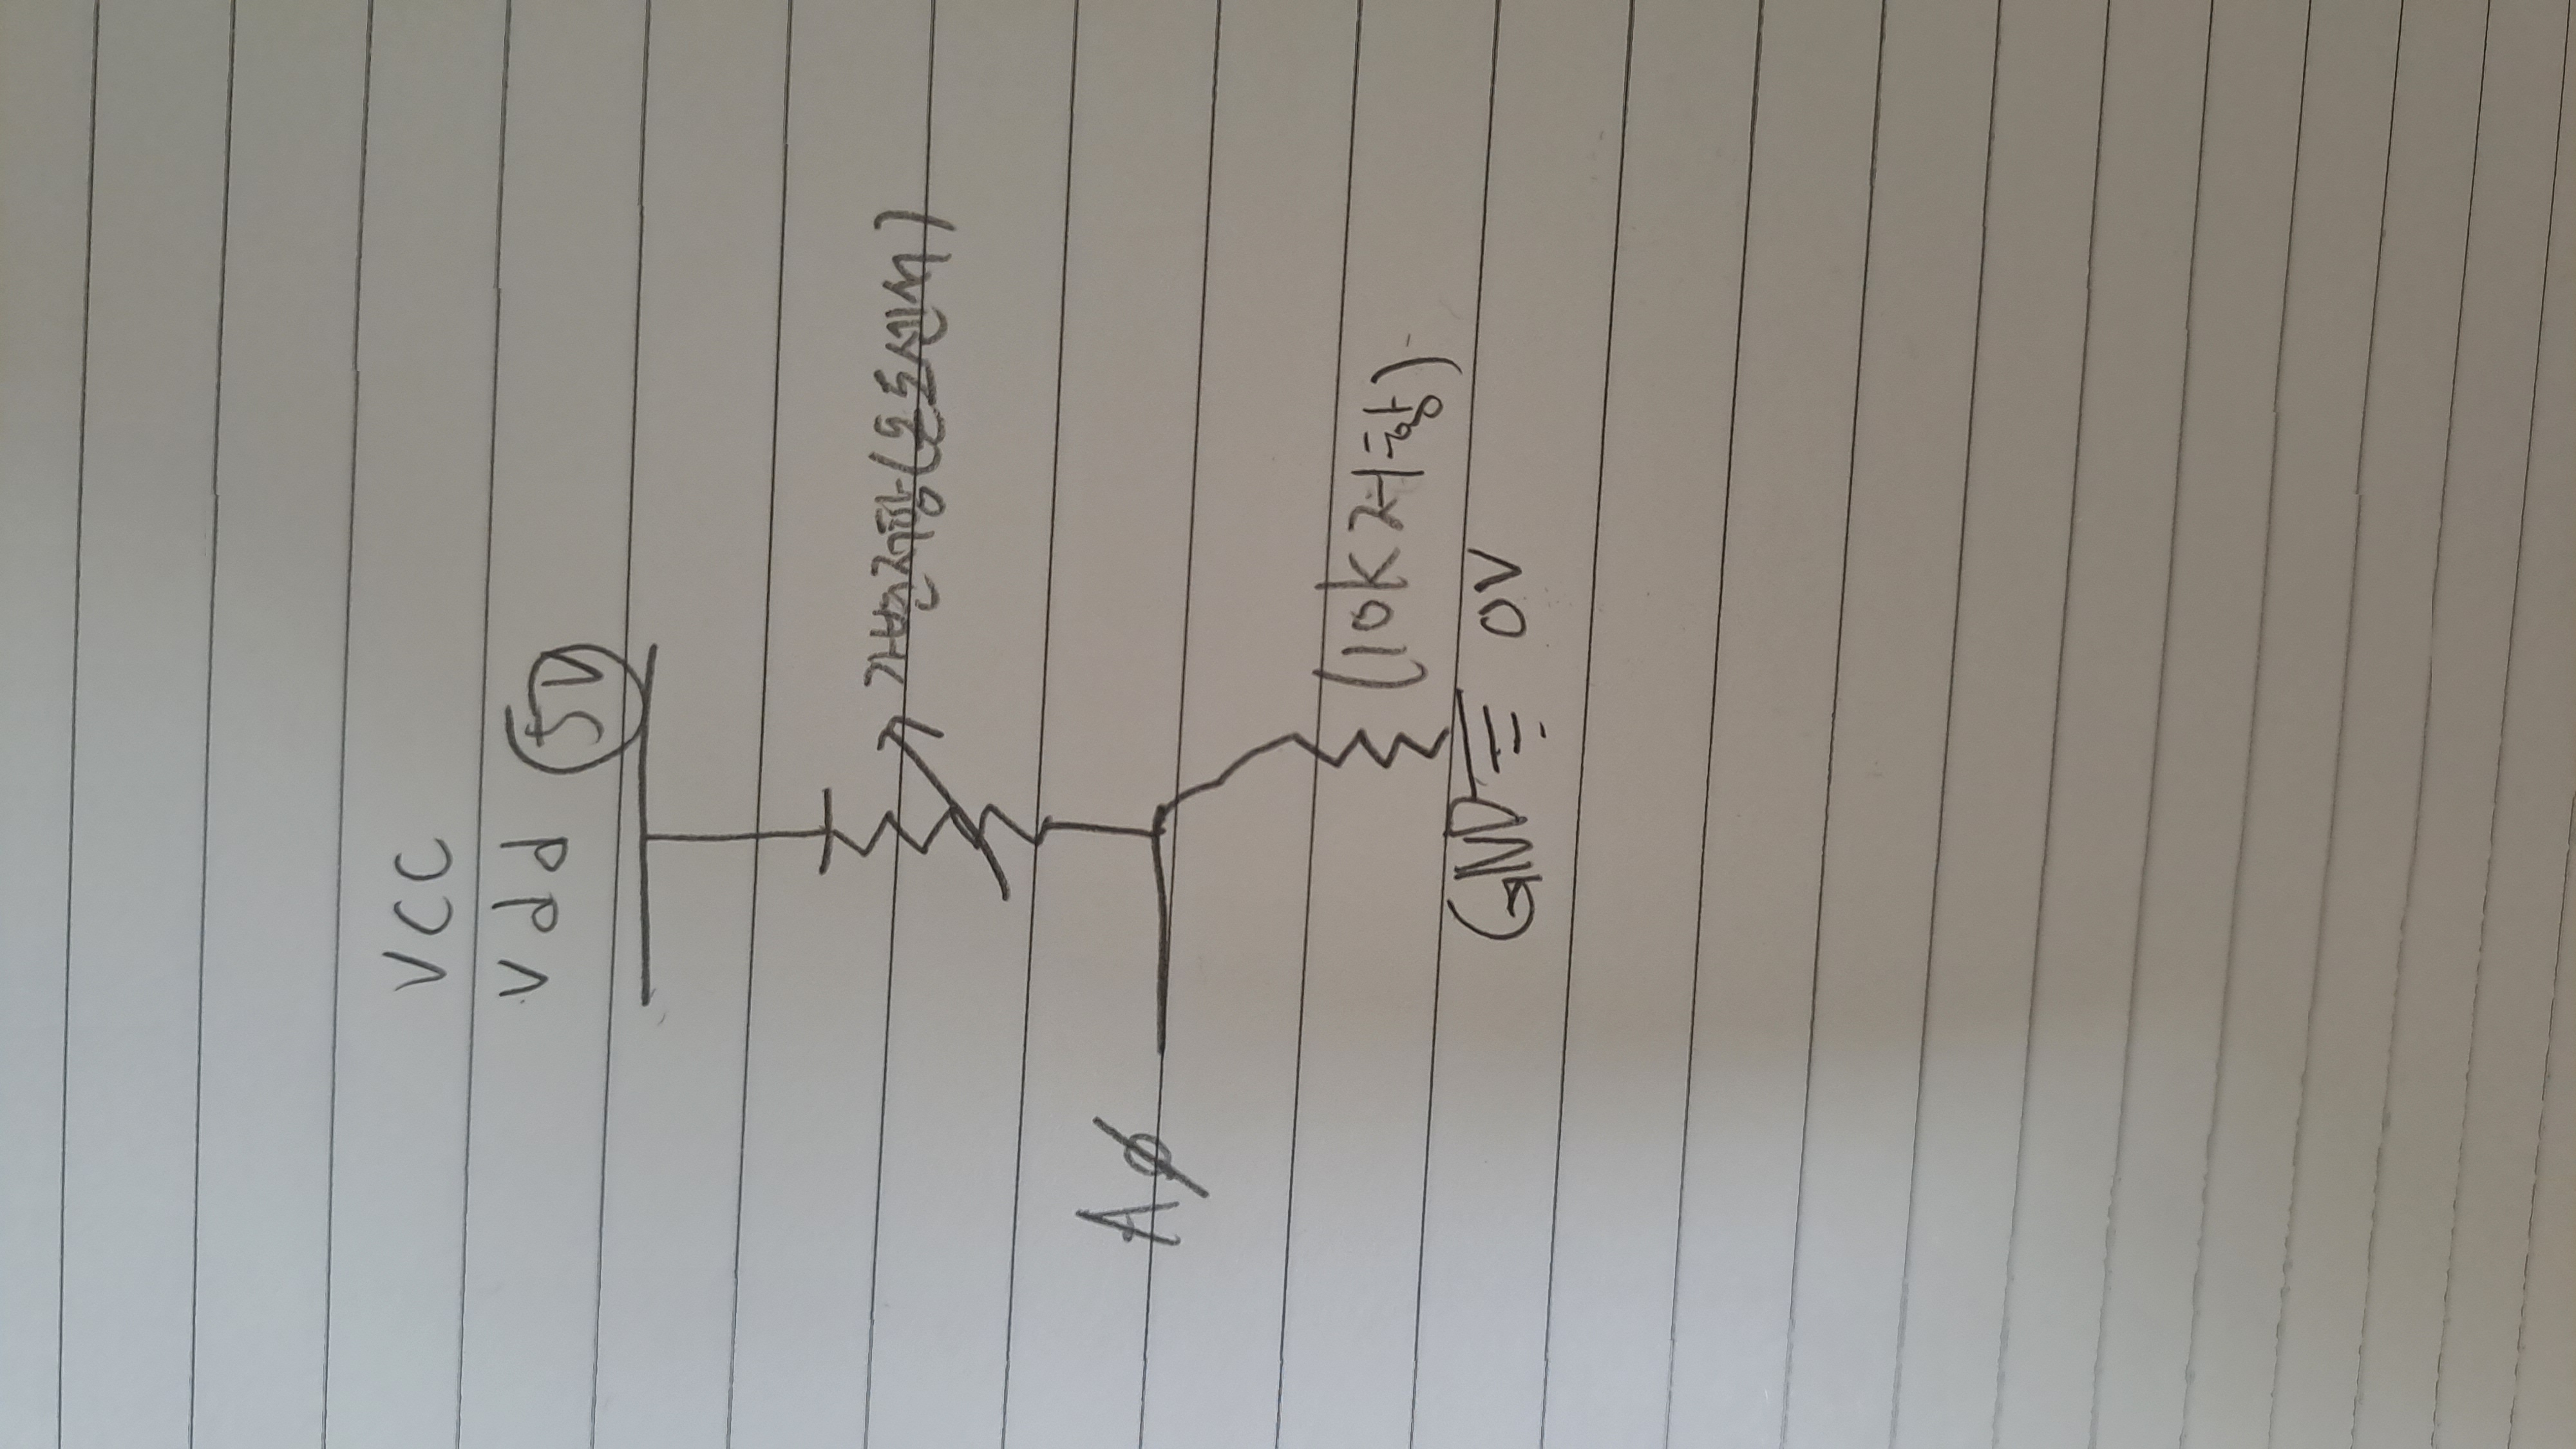 VCC
Vdd 5V
가변저항(온도센서)
AØ
(10K저항)
GND 0V